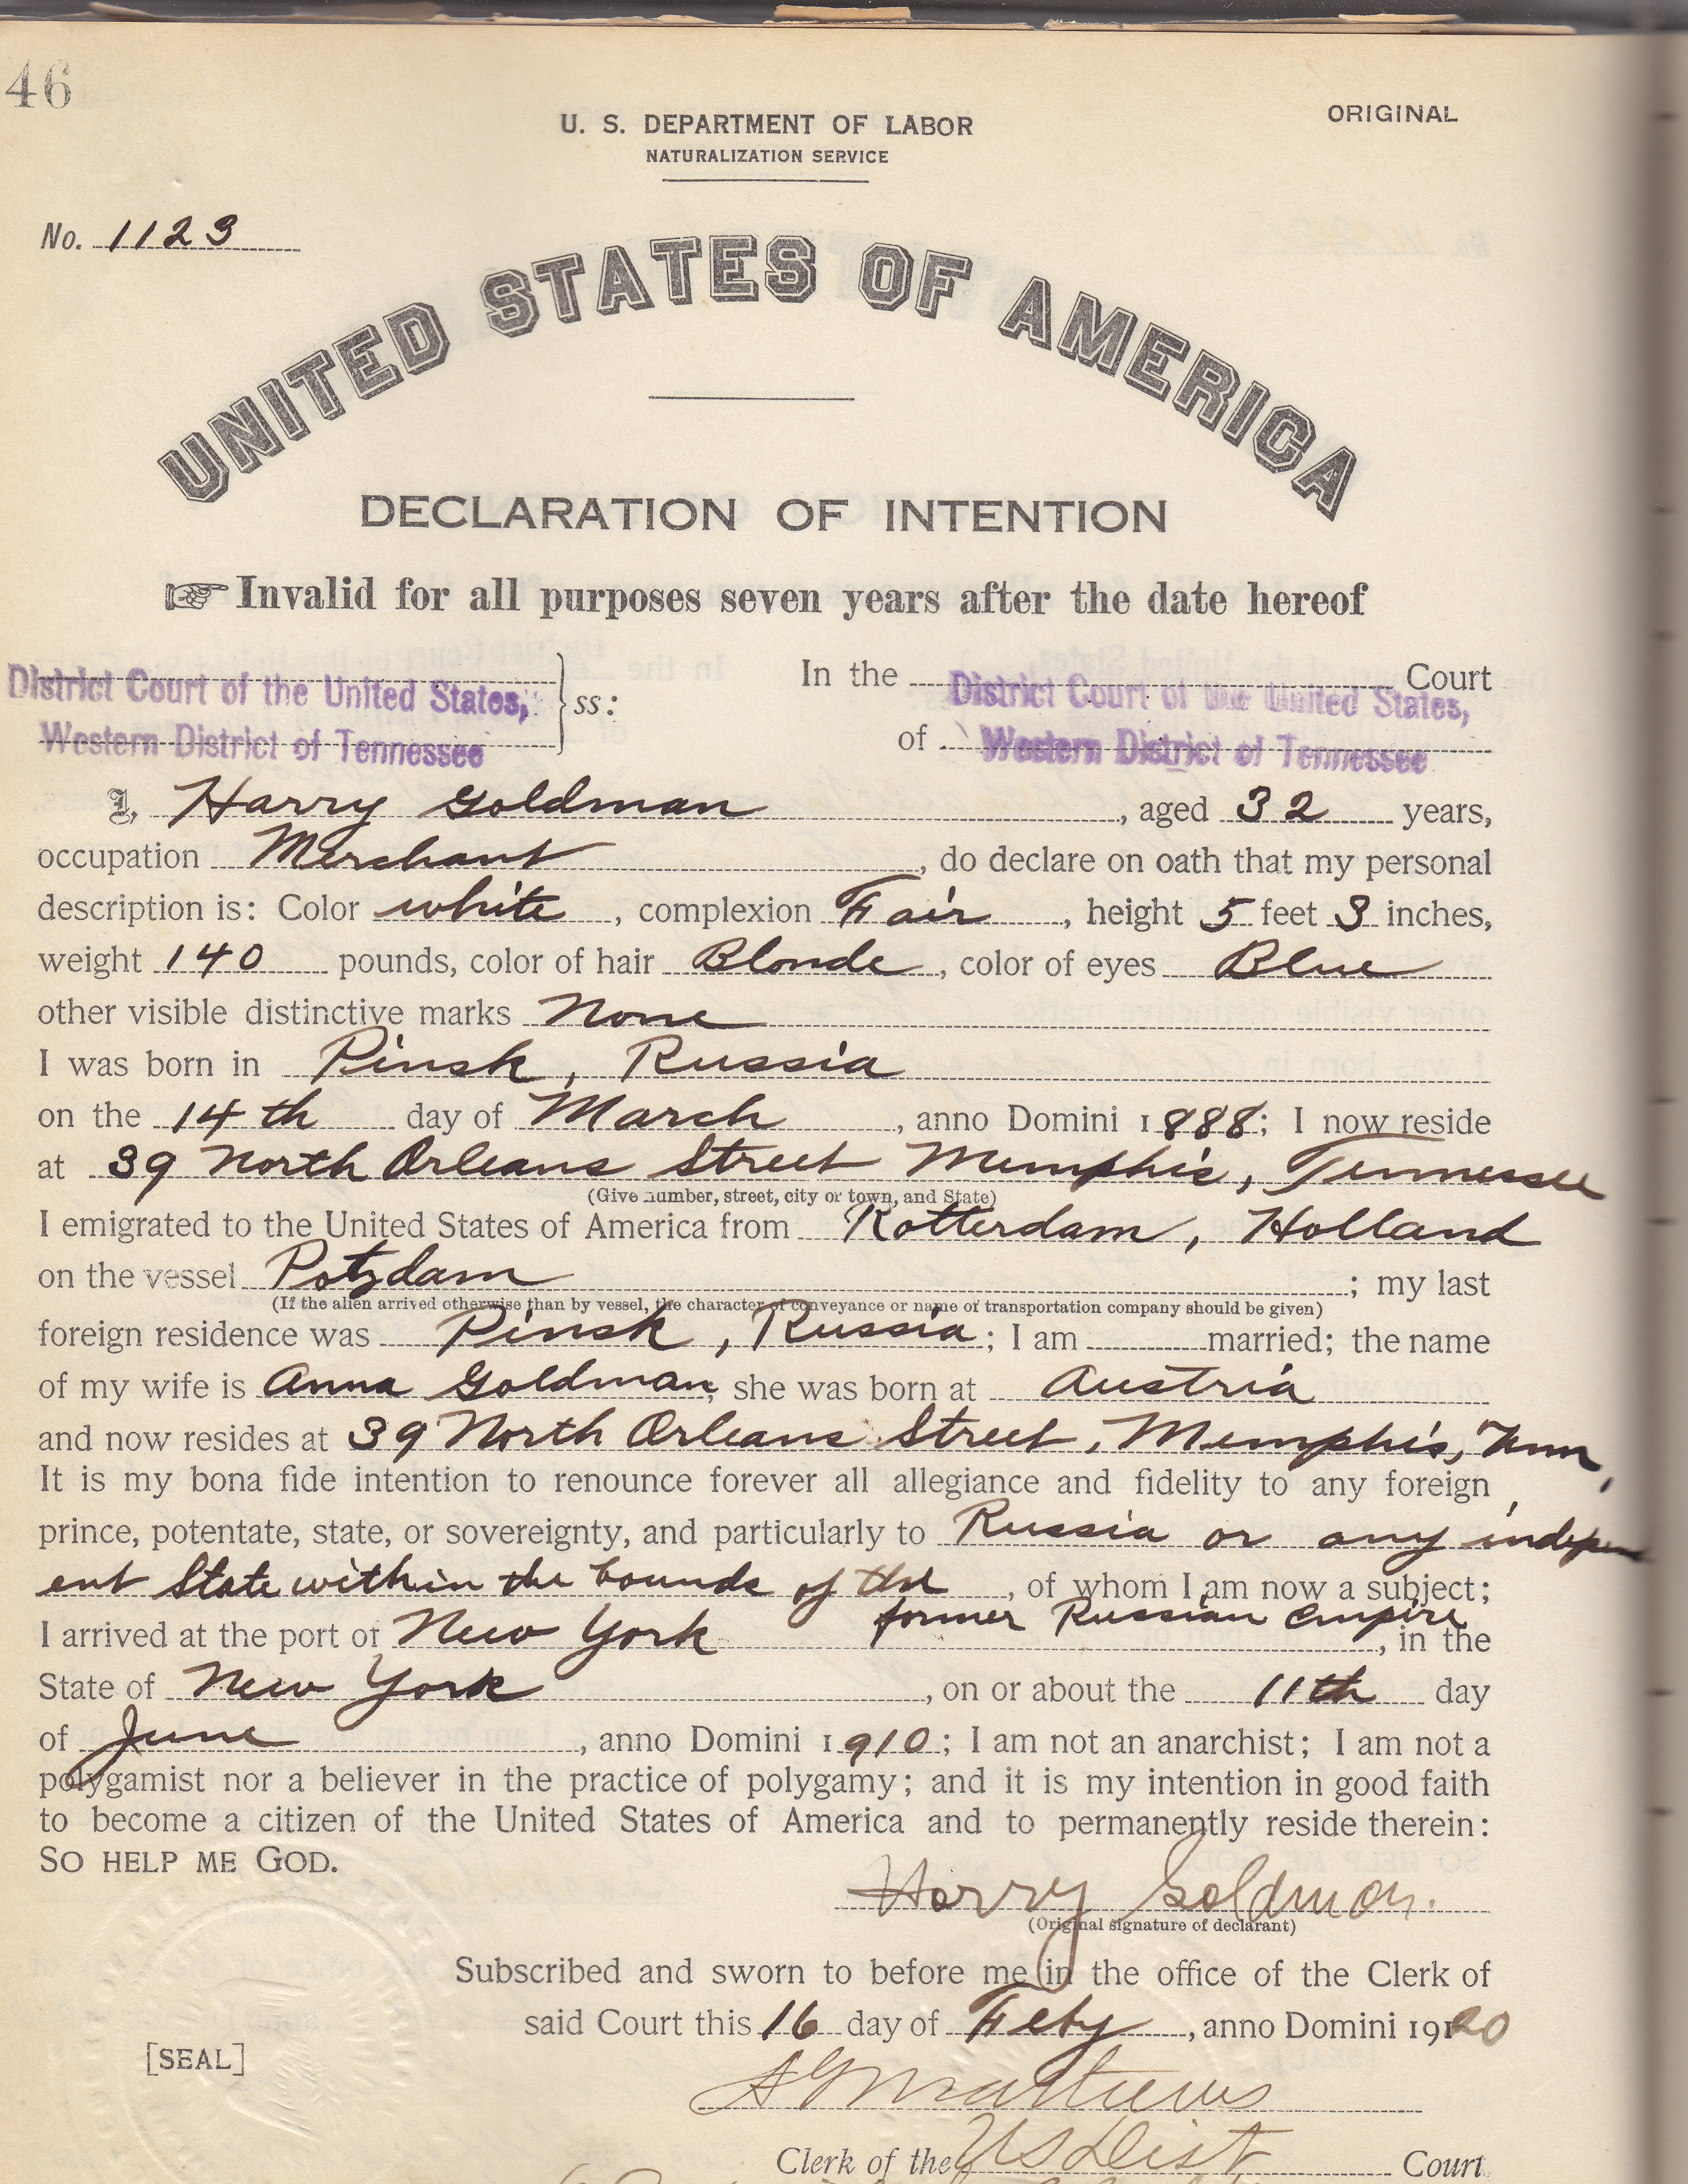 46
ORIGINAL
U. S. DEPARTMENT OF LABOR
NATURALIZATION SERVICE
No. 1123
UNITED STATES OF AMERICA
DECLARATION OF INTENTION
☞ Invalid for all purposes seven years after the date hereof
District Court of the United States, } ss: In the District Court of the United States, Court
Western District of Tennessee of Western District of Tennessee
I, Harry Goldman, aged 32 years,
occupation Merchant, do declare on oath that my personal
description is: Color white, complexion Fair, height 5 feet 3 inches,
weight 140 pounds, color of hair Blonde, color of eyes Blue
other visible distinctive marks None
I was born in Pinsk, Russia
on the 14th day of March, anno Domini 1888; I now reside
at 39 North Orleans Street Memphis, Tennessee
(Give number, street, city or town, and State)
I emigrated to the United States of America from Rotterdam, Holland
on the vessel Potzdam; my last
(If the alien arrived otherwise than by vessel, the character of conveyance or name of transportation company should be given)
foreign residence was Pinsk, Russia; I am married; the name
of my wife is Anna Goldman; she was born at Austria
and now resides at 39 North Orleans Street, Memphis, Tenn,
It is my bona fide intention to renounce forever all allegiance and fidelity to any foreign
prince, potentate, state, or sovereignty, and particularly to Russia or any independ
ent State within the bounds of the, of whom I am now a subject;
former Russian Empire
I arrived at the port of New York, in the
State of New York, on or about the 11th day
of June, anno Domini 1910; I am not an anarchist; I am not a
polygamist nor a believer in the practice of polygamy; and it is my intention in good faith
to become a citizen of the United States of America and to permanently reside therein:
SO HELP ME GOD.
Harry Goldman.
(Original signature of declarant)
Subscribed and sworn to before me in the office of the Clerk of
said Court this 16 day of Feby, anno Domini 1920
[SEAL]
Mathews
Clerk of the US Dist Court.